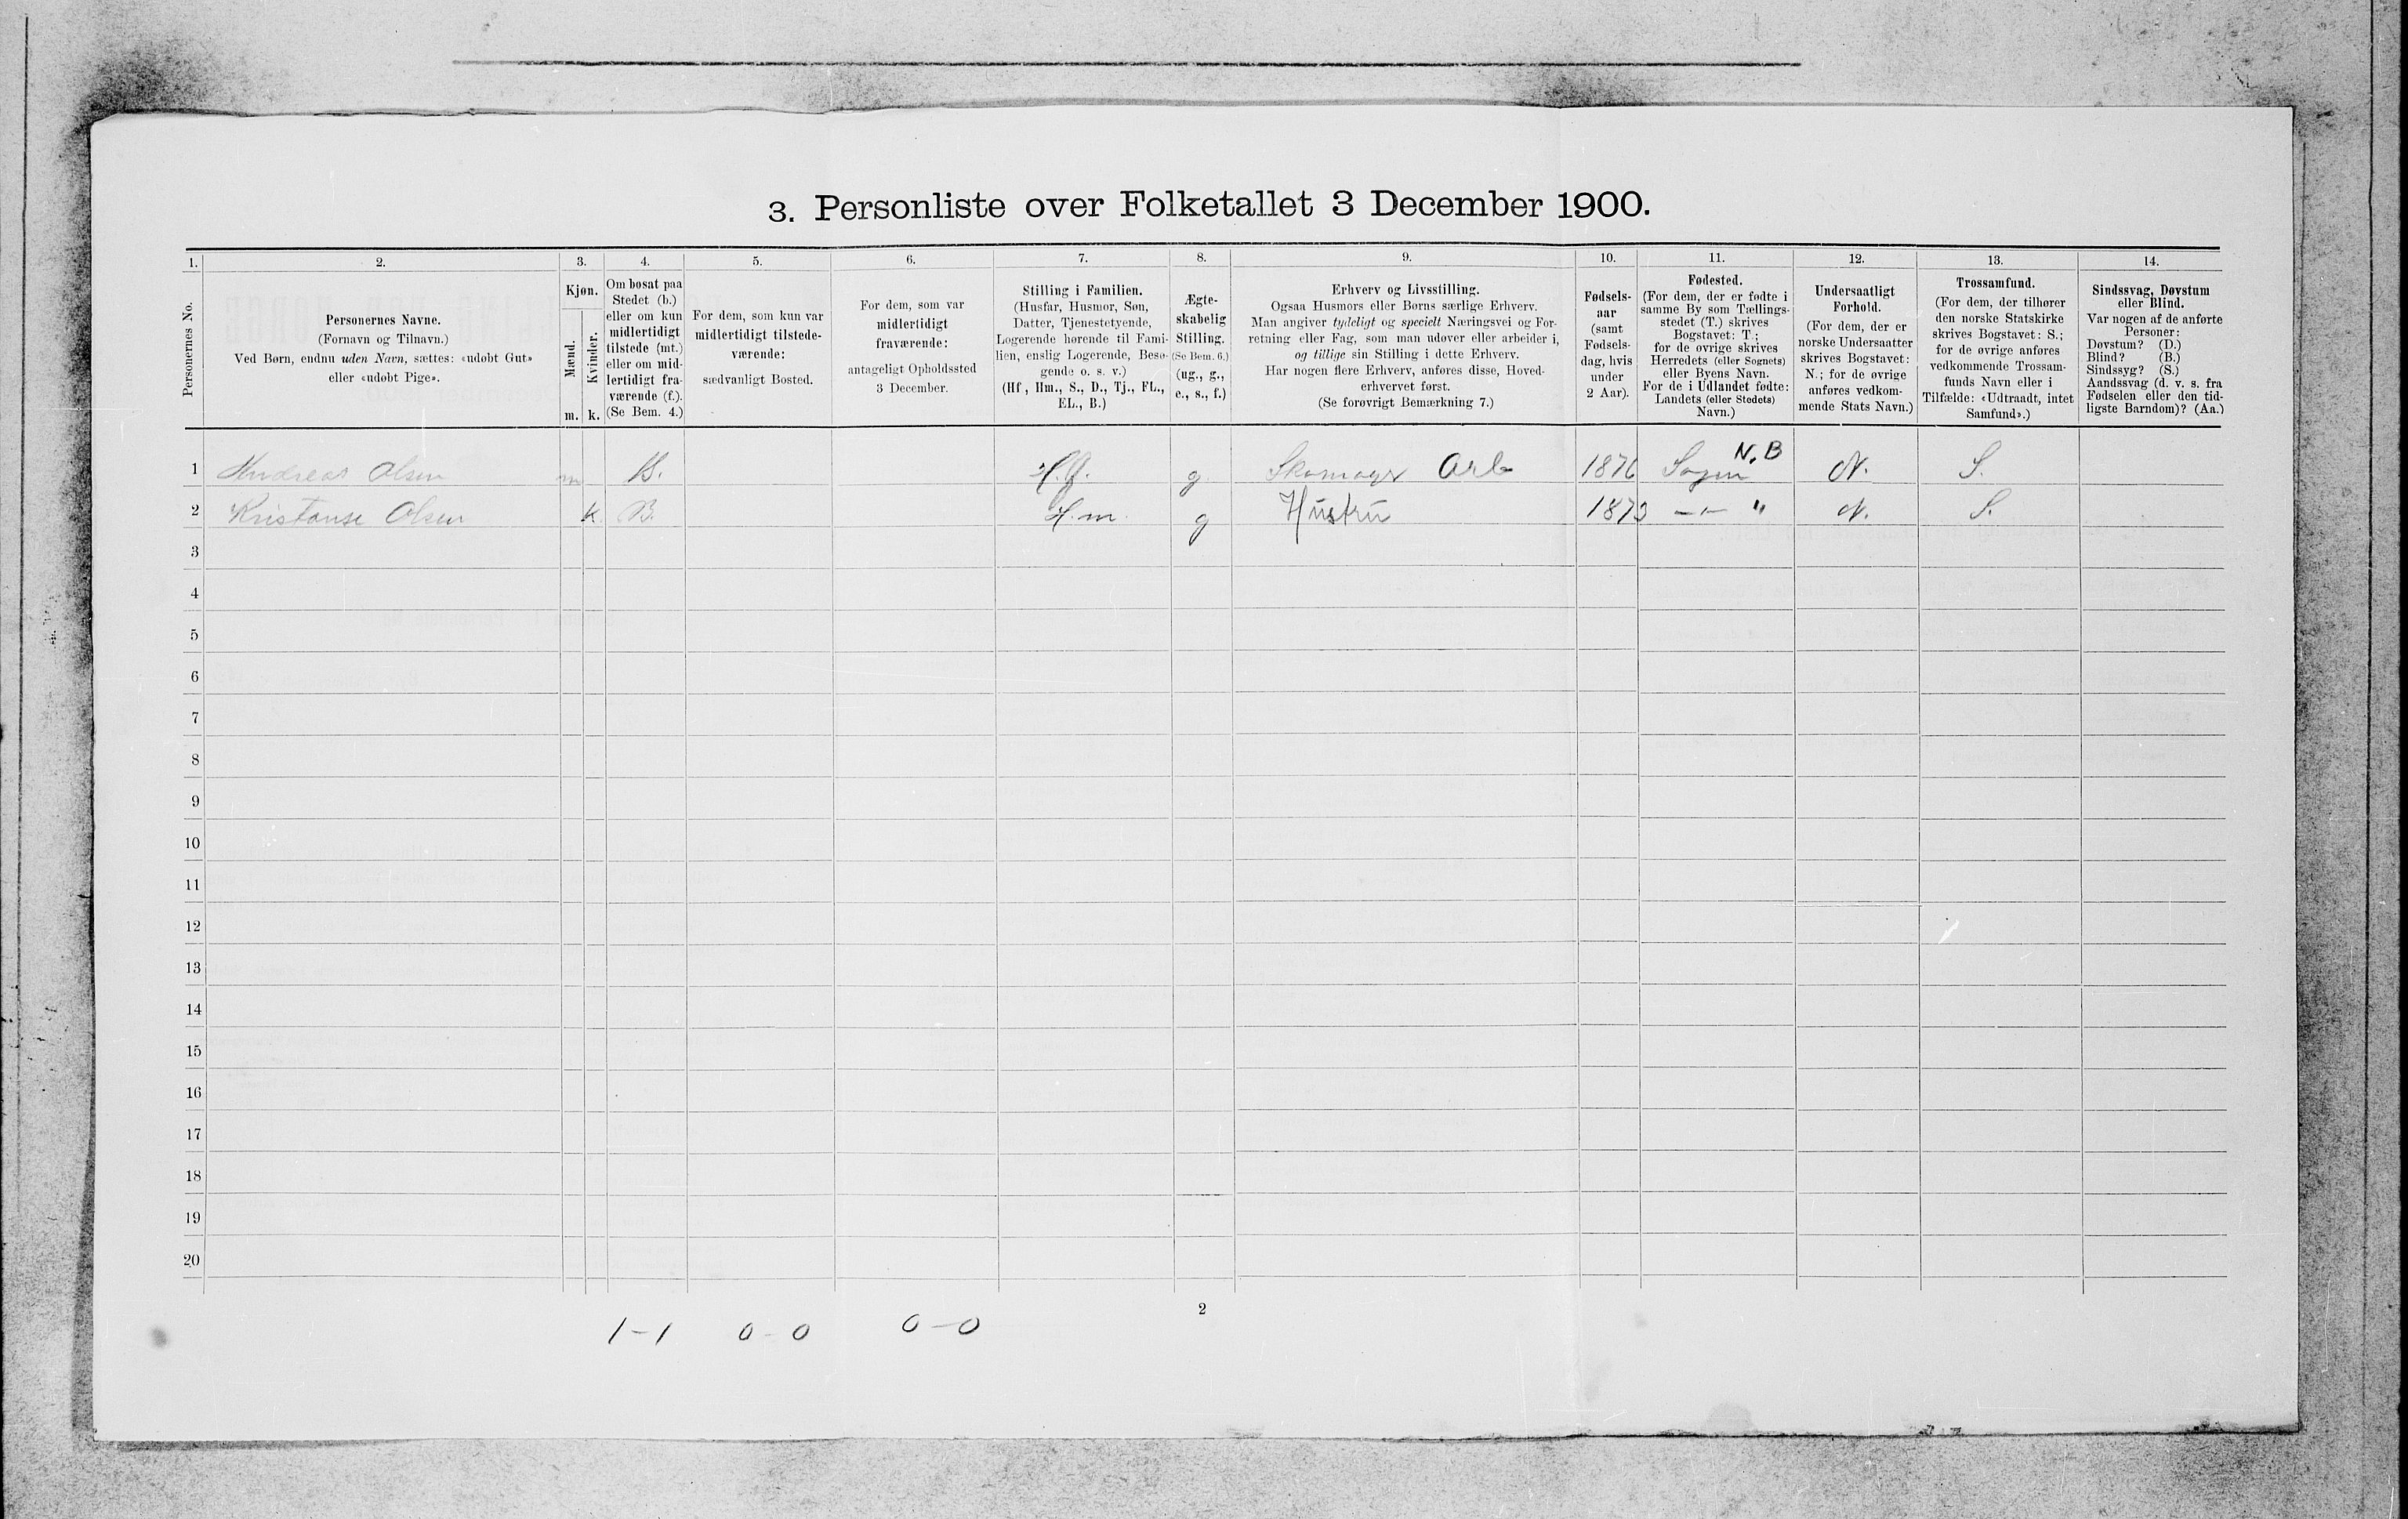 3. Personliste over Folketallet 3 December 1900.
1. 2. 3. 4. 5. 6. 7. 8. 9. 10. 11. 12. 13. 14.
Personernes No.
Personernes Navne.
(Fornavn og Tilnavn.)
Ved Børn, endnu uden Navn, sættes: «udøbt Gut»
eller «udøbt Pige».
Kjøn.
Mænd.
Kvinder.
m. k.
Om bosat paa
Stedet (b.)
eller om kun
midlertidigt
tilstede (mt.)
eller om mid-
lertidigt fra-
værende (f.).
(Se Bem. 4.)
For dem, som kun var
midlertidigt tilstede-
værende:
sædvanligt Bosted.
For dem, som var
midlertidigt
fraværende:
antageligt Opholdssted
3 December.
Stilling i Familien.
(Husfar, Husmor, Søn,
Datter, Tjenestetyende,
Logerende hørende til Fami-
lien, enslig Logerende, Besø-
gende o. s. v.)
(Hf, Hm., S., D., Tj., FL.,
EL., B.)
Ægte-
skabelig
Stilling.
(Se Bem. 6.)
(ug., g.,
e., s., f.)
Erhverv og Livsstilling.
Ogsaa Husmors eller Børns særlige Erhverv.
Man angiver tydeligt og specielt Næringsvei og For-
retning eller Fag, som man udøver eller arbeider i,
og tillige sin Stilling i dette Erhverv.
Har nogen flere Erhverv, anføres disse, Hoved-
erhvervet først.
(Se forøvrigt Bemærkning 7.)
Fødsels-
aar
(samt
Fødsels-
dag, hvis
under
2 Aar).
Fødested.
(For dem, der er fødte i
samme By som Tællings-
stedet (T.) skrives
Bogstavet: T.;
for de øvrige skrives
Herredets (eller Sognets)
eller Byens Navn.
For de i Udlandet fødte:
Landets (eller Stedets)
Navn.)
Undersaatligt
Forhold.
(For dem, der er
norske Undersaatter
skrives Bogstavet:
N.; for de øvrige
anføres vedkom-
mende Stats Navn.)
Trossamfund.
(For dem, der tilhører
den norske Statskirke
skrives Bogstavet: S.;
for de øvrige anføres
vedkommende Trossam-
funds Navn eller i
Tilfælde: «Udtraadt, intet
Samfund».)
Sindssvag, Døvstum
eller Blind.
Var nogen af de anførte
Personer:
Døvstum? (D.)
Blind? (B.)
Sindssyg? (S.)
Aandssvag (d. v. s. fra
Fødselen eller den tid-
ligste Barndom)? (Aa.)
1 Andreas Olsen m B. H.f. g. Skomager Arb 1876 Sogn N.B N. S.
2 Kristanse Olsen k B. H.m. g Hustru 1873 -"- " N. S.
3
4
5
6
7
8
9
10
11
12
13
14
15
16
17
18
19
20
2
1-1 0-0 0-0